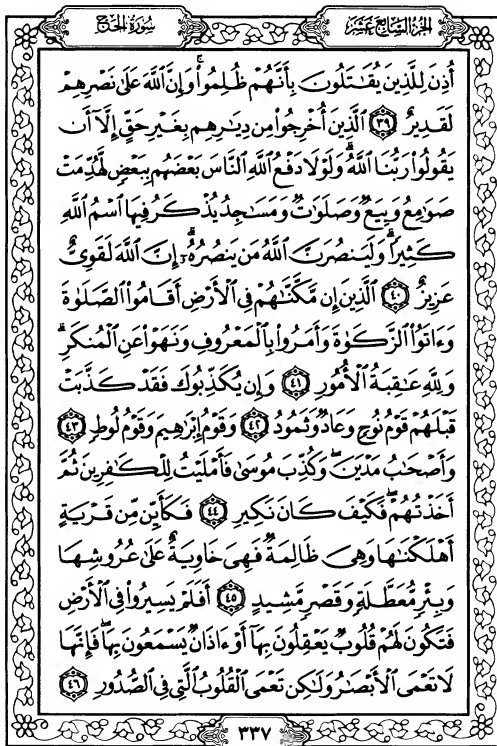 سُورَةُ الحَجِّ
الجُزْءُ السَّابِعَ عَشَرَ
أُذِنَ لِلَّذِينَ يُقَٰتَلُونَ بِأَنَّهُمْ ظُلِمُوا۟ۚ وَإِنَّ ٱللَّهَ عَلَىٰ نَصْرِهِمْ
لَقَدِيرٌ ٣٩ ٱلَّذِينَ أُخْرِجُوا۟ مِن دِيَٰرِهِم بِغَيْرِ حَقٍّ إِلَّآ أَن
يَقُولُوا۟ رَبُّنَا ٱللَّهُۗ وَلَوْلَا دَفْعُ ٱللَّهِ ٱلنَّاسَ بَعْضَهُم بِبَعْضٍ لَّهُدِّمَتْ
صَوَٰمِعُ وَبِيَعٌ وَصَلَوَٰتٌ وَمَسَٰجِدُ يُذْكَرُ فِيهَا ٱسْمُ ٱللَّهِ
كَثِيرًاۗ وَلَيَنصُرَنَّ ٱللَّهُ مَن يَنصُرُهُۥٓۗ إِنَّ ٱللَّهَ لَقَوِىٌّ
عَزِيزٌ ٤٠ ٱلَّذِينَ إِن مَّكَّنَّٰهُمْ فِى ٱلْأَرْضِ أَقَامُوا۟ ٱلصَّلَوٰةَ
وَءَاتَوُا۟ ٱلزَّكَوٰةَ وَأَمَرُوا۟ بِٱلْمَعْرُوفِ وَنَهَوْا۟ عَنِ ٱلْمُنكَرِۗ
وَلِلَّهِ عَٰقِبَةُ ٱلْأُمُورِ ٤١ وَإِن يُكَذِّبُوكَ فَقَدْ كَذَّبَتْ
قَبْلَهُمْ قَوْمُ نُوحٍ وَعَادٌ وَثَمُودُ ٤٢ وَقَوْمُ إِبْرَٰهِيمَ وَقَوْمُ لُوطٍ ٤٣
وَأَصْحَٰبُ مَدْيَنَۖ وَكُذِّبَ مُوسَىٰ فَأَمْلَيْتُ لِلْكَٰفِرِينَ ثُمَّ
أَخَذْتُهُمْۖ فَكَيْفَ كَانَ نَكِيرِ ٤٤ فَكَأَيِّن مِّن قَرْيَةٍ
أَهْلَكْنَٰهَا وَهِىَ ظَالِمَةٌ فَهِىَ خَاوِيَةٌ عَلَىٰ عُرُوشِهَا
وَبِئْرٍ مُّعَطَّلَةٍ وَقَصْرٍ مَّشِيدٍ ٤٥ أَفَلَمْ يَسِيرُوا۟ فِى ٱلْأَرْضِ
فَتَكُونَ لَهُمْ قُلُوبٌ يَعْقِلُونَ بِهَآ أَوْ ءَاذَانٌ يَسْمَعُونَ بِهَاۖ فَإِنَّهَا
لَا تَعْمَى ٱلْأَبْصَٰرُ وَلَٰكِن تَعْمَى ٱلْقُلُوبُ ٱلَّتِى فِى ٱلصُّدُورِ ٤٦
٣٣٧